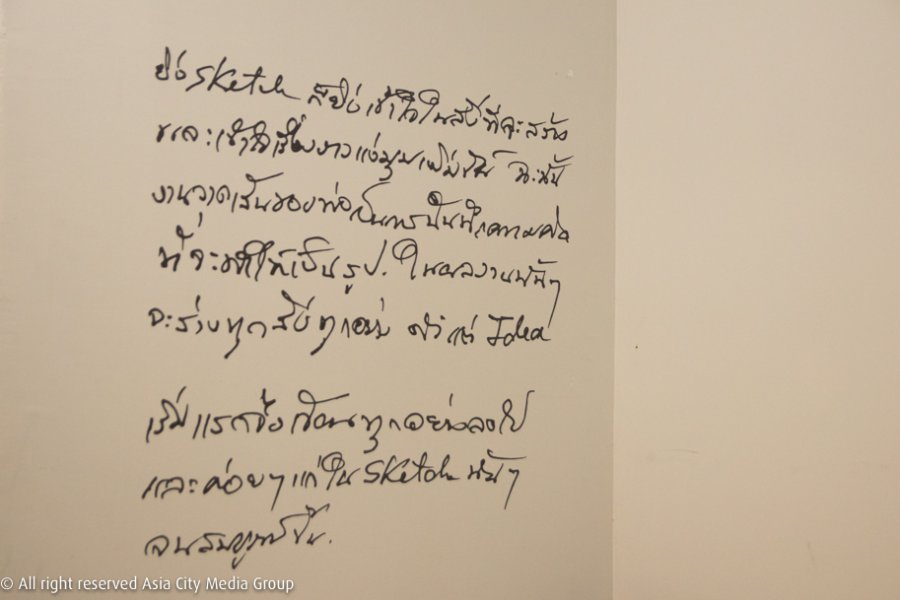 ยิ่ง Sketch ก็ยิ่งเข้าใจในสิ่งที่จะสร้าง
และเข้าใจเรื่องราวแง่มุมเพิ่มขึ้น ฉะนั้น
งานวาดเส้นของพ่อเป็นการบันทึกความคิด
ที่จะทำให้เป็นรูป. ในผลงานนั้นๆ
จะร่างทุกสิ่งทุกอย่าง ตั้งแต่ Idea
เริ่มแรกซึ่งเขียนทุกอย่างลงไป
และค่อยๆ แก้ใน Sketch นั้นๆ
จนสมบูรณ์ขึ้น.
© All right reserved Asia City Media Group